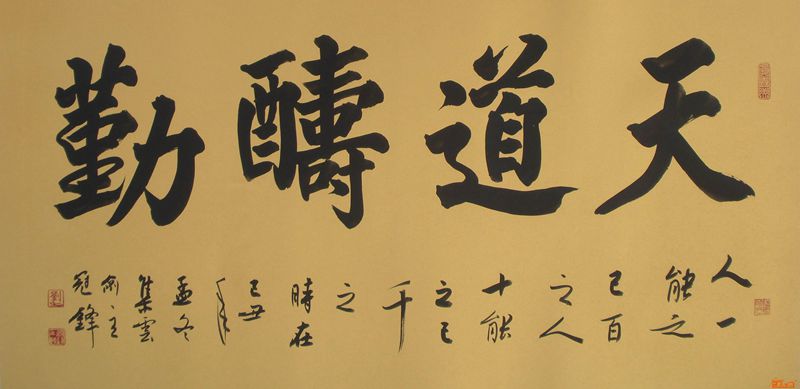 天道醻勤
人一
能之
己百
之人
十能
之己
千
之
時在
己丑
年
孟冬
集雲
主
冠鋒
劉